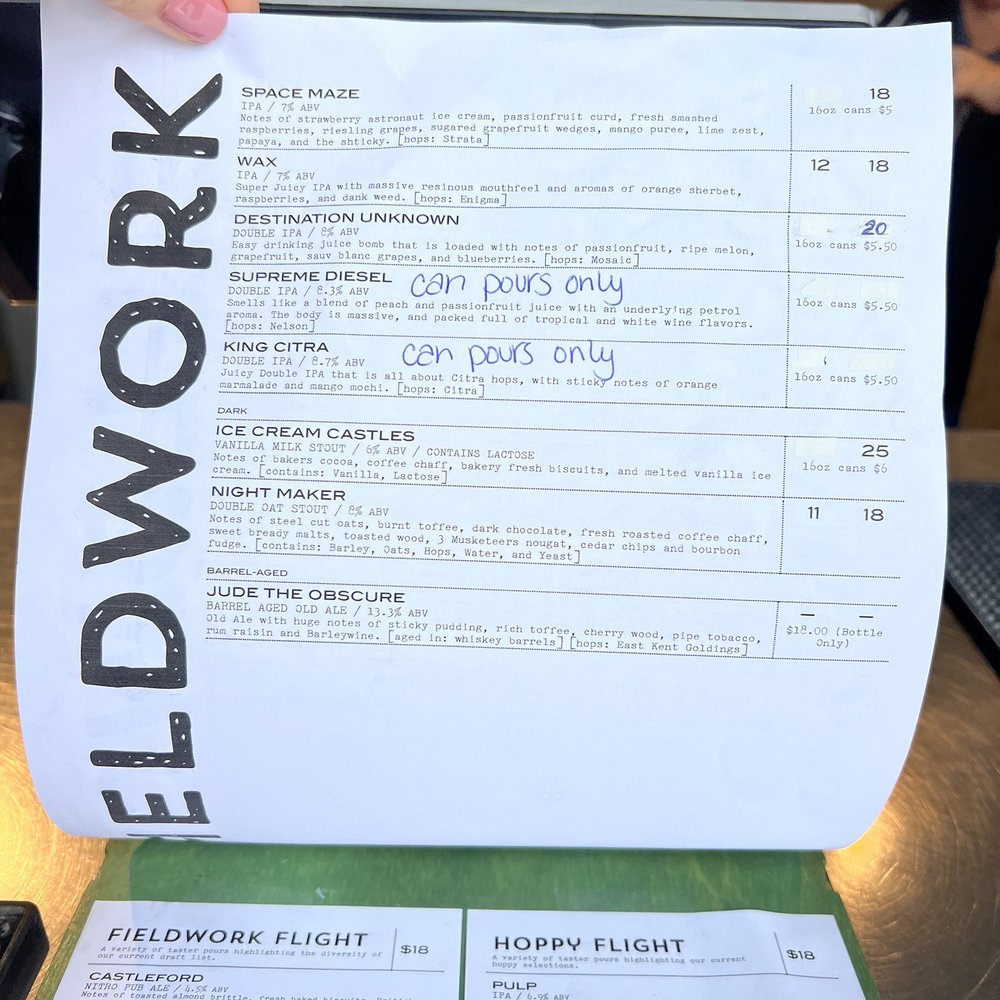 ELDWORK
SPACE MAZE
IPA / 7% ABV
Notes of strawberry astronaut ice cream, passionfruit curd, fresh smashed
raspberries, riesling grapes, sugared grapefruit wedges, mango puree, lime zest,
papaya, and the shticky. [hops: Strata]
18
16oz cans $5
WAX
IPA / 7% ABV
Super Juicy IPA with massive resinous mouthfeel and aromas of orange sherbet,
raspberries, and dank weed. [hops: Enigma]
12 18
DESTINATION UNKNOWN
DOUBLE IPA / 8% ABV
Easy drinking juice bomb that is loaded with notes of passionfruit, ripe melon,
grapefruit, sauv blanc grapes, and blueberries. [hops: Mosaic]
20
16oz cans $5.50
SUPREME DIESEL can pours only
DOUBLE IPA / 8.3% ABV
Smells like a blend of peach and passionfruit juice with an underlying petrol
aroma. The body is massive, and packed full of tropical and white wine flavors.
[hops: Nelson]
16oz cans $5.50
KING CITRA can pours only
DOUBLE IPA / 8.7% ABV
Juicy Double IPA that is all about Citra hops, with sticky notes of orange
marmalade and mango mochi. [hops: Citra]
16oz cans $5.50
DARK
ICE CREAM CASTLES
VANILLA MILK STOUT / 6% ABV / CONTAINS LACTOSE
Notes of bakers cocoa, coffee chaff, bakery fresh biscuits, and melted vanilla ice
cream. [contains: Vanilla, Lactose]
25
16oz cans $6
NIGHT MAKER
DOUBLE OAT STOUT / 8% ABV
Notes of steel cut oats, burnt toffee, dark chocolate, fresh roasted coffee chaff,
sweet bready malts, toasted wood, 3 Musketeers nougat, cedar chips and bourbon
fudge. [contains: Barley, Oats, Hops, Water, and Yeast]
11 18
BARREL-AGED
JUDE THE OBSCURE
BARREL AGED OLD ALE / 13.3% ABV
Old Ale with huge notes of sticky pudding, rich toffee, cherry wood, pipe tobacco,
rum raisin and Barleywine. [aged in: whiskey barrels] [hops: East Kent Goldings]
— —
$18.00 (Bottle
Only)
FIELDWORK FLIGHT
A variety of taster pours highlighting the diversity of
our current draft list.
$18
CASTLEFORD
NITRO PUB ALE / 4.5% ABV
Notes of toasted almond brittle, fresh baked biscuits,
HOPPY FLIGHT
A variety of taster pours highlighting our current
hoppy selections.
$18
PULP
IPA / 6.9% ABV